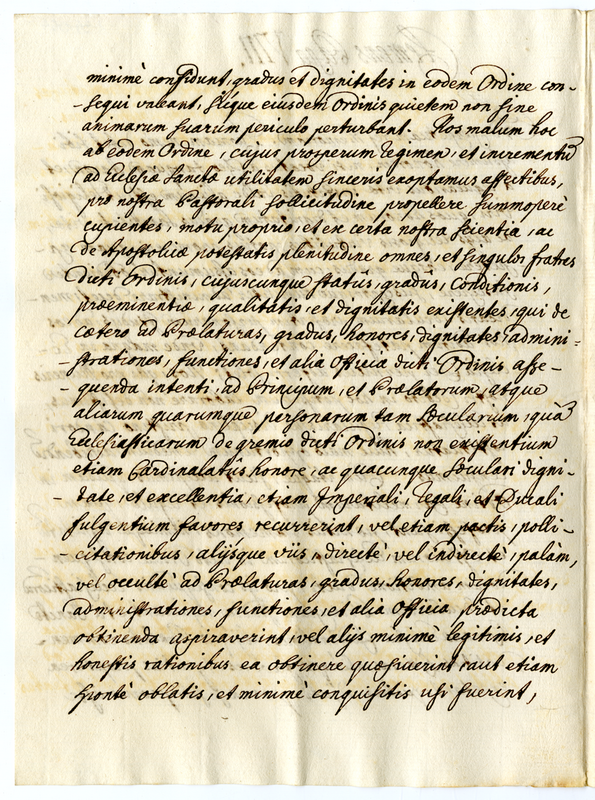 minimè confidunt, gradus et dignitates in eodem Ordine con-
-sequi valeant, sicque eiusdem Ordinis quietem non sine
animarum suarum periculo perturbant. Nos malum hoc
ab eodem Ordine, cujus prosperum Regimen, et incrementũ
ad Ecclesiæ Sanctæ utilitatem sinceris exoptamus affectibus,
pro nostra Pastorali sollicitudine propellere summoperè
cupientes, motu proprio, et ex certa nostra scientia, ac
de Apostolicæ potestatis plenitudine omnes, et singulos fratres
dicti Ordinis, cujuscunque statûs, gradûs, Conditionis,
præeminentiæ, qualitatis, et dignitatis existentes, qui de
cætero ad Prælaturas, gradus, honores, dignitates, admini=
-strationes, functiones, et alia Officia dicti Ordinis asse-
-quenda intenti, ad Principum, et Prælatorum, atque
aliarum quarumque personarum tam Sæcularium, quã
Ecclesiasticarum de gremio dicti Ordinis non existentium
etiam Cardinalatûs honore, ac quacunque Sæculari digni-
-tate, et excellentia, etiam Imperiali, Regali, et Ducali
fulgentium favores recurrerint, vel etiam pactis, polli-
-citationibus, alijsque viis, directè, vel indirectè, palam,
vel occultè ad Prælaturas, gradus, honores, dignitates,
administrationes, functiones, et alia Officia prædicta
obtinenda aspiraverint, vel alijs minimè legitimis, et
honestis rationibus ea obtinere quæsiverint, aut etiam
spontè oblatis, et minimè conquisitis usi fuerint,